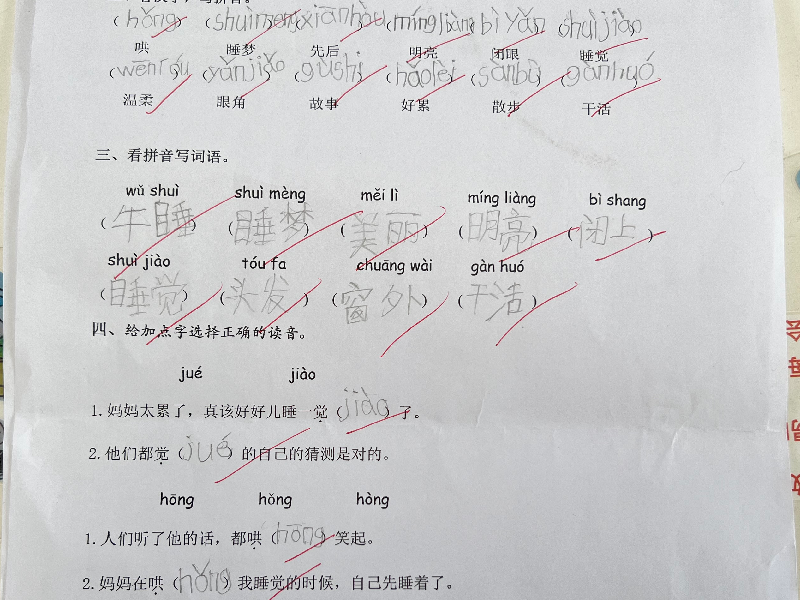 (hǒng) (shuìmèng) (xiānhòu) (míngliàng) (bìyǎn) (shuìjiào)
哄 睡梦 先后 明亮 闭眼 睡觉
(wēnróu) (yǎnjiǎo) (gùshi) (hǎolèi) (sànbù) (gànhuó)
温柔 眼角 故事 好累 散步 干活
三、看拼音写词语。
wǔ shuì shuì mèng měi lì míng liàng bì shang
(牛睡) (睡梦) (美丽) (明亮) (闭上)
shuì jiào tóu fa chuāng wài gàn huó
(睡觉) (头发) (窗外) (干活)
四、给加点字选择正确的读音。
jué jiào
1.妈妈太累了，真该好好儿睡一觉(jiào)了。
2.他们都觉(jué)的自己的猜测是对的。
hōng hǒng hòng
1.人们听了他的话，都哄(hōng)笑起。
2.妈妈在哄(hǒng)我睡觉的时候，自己先睡着了。